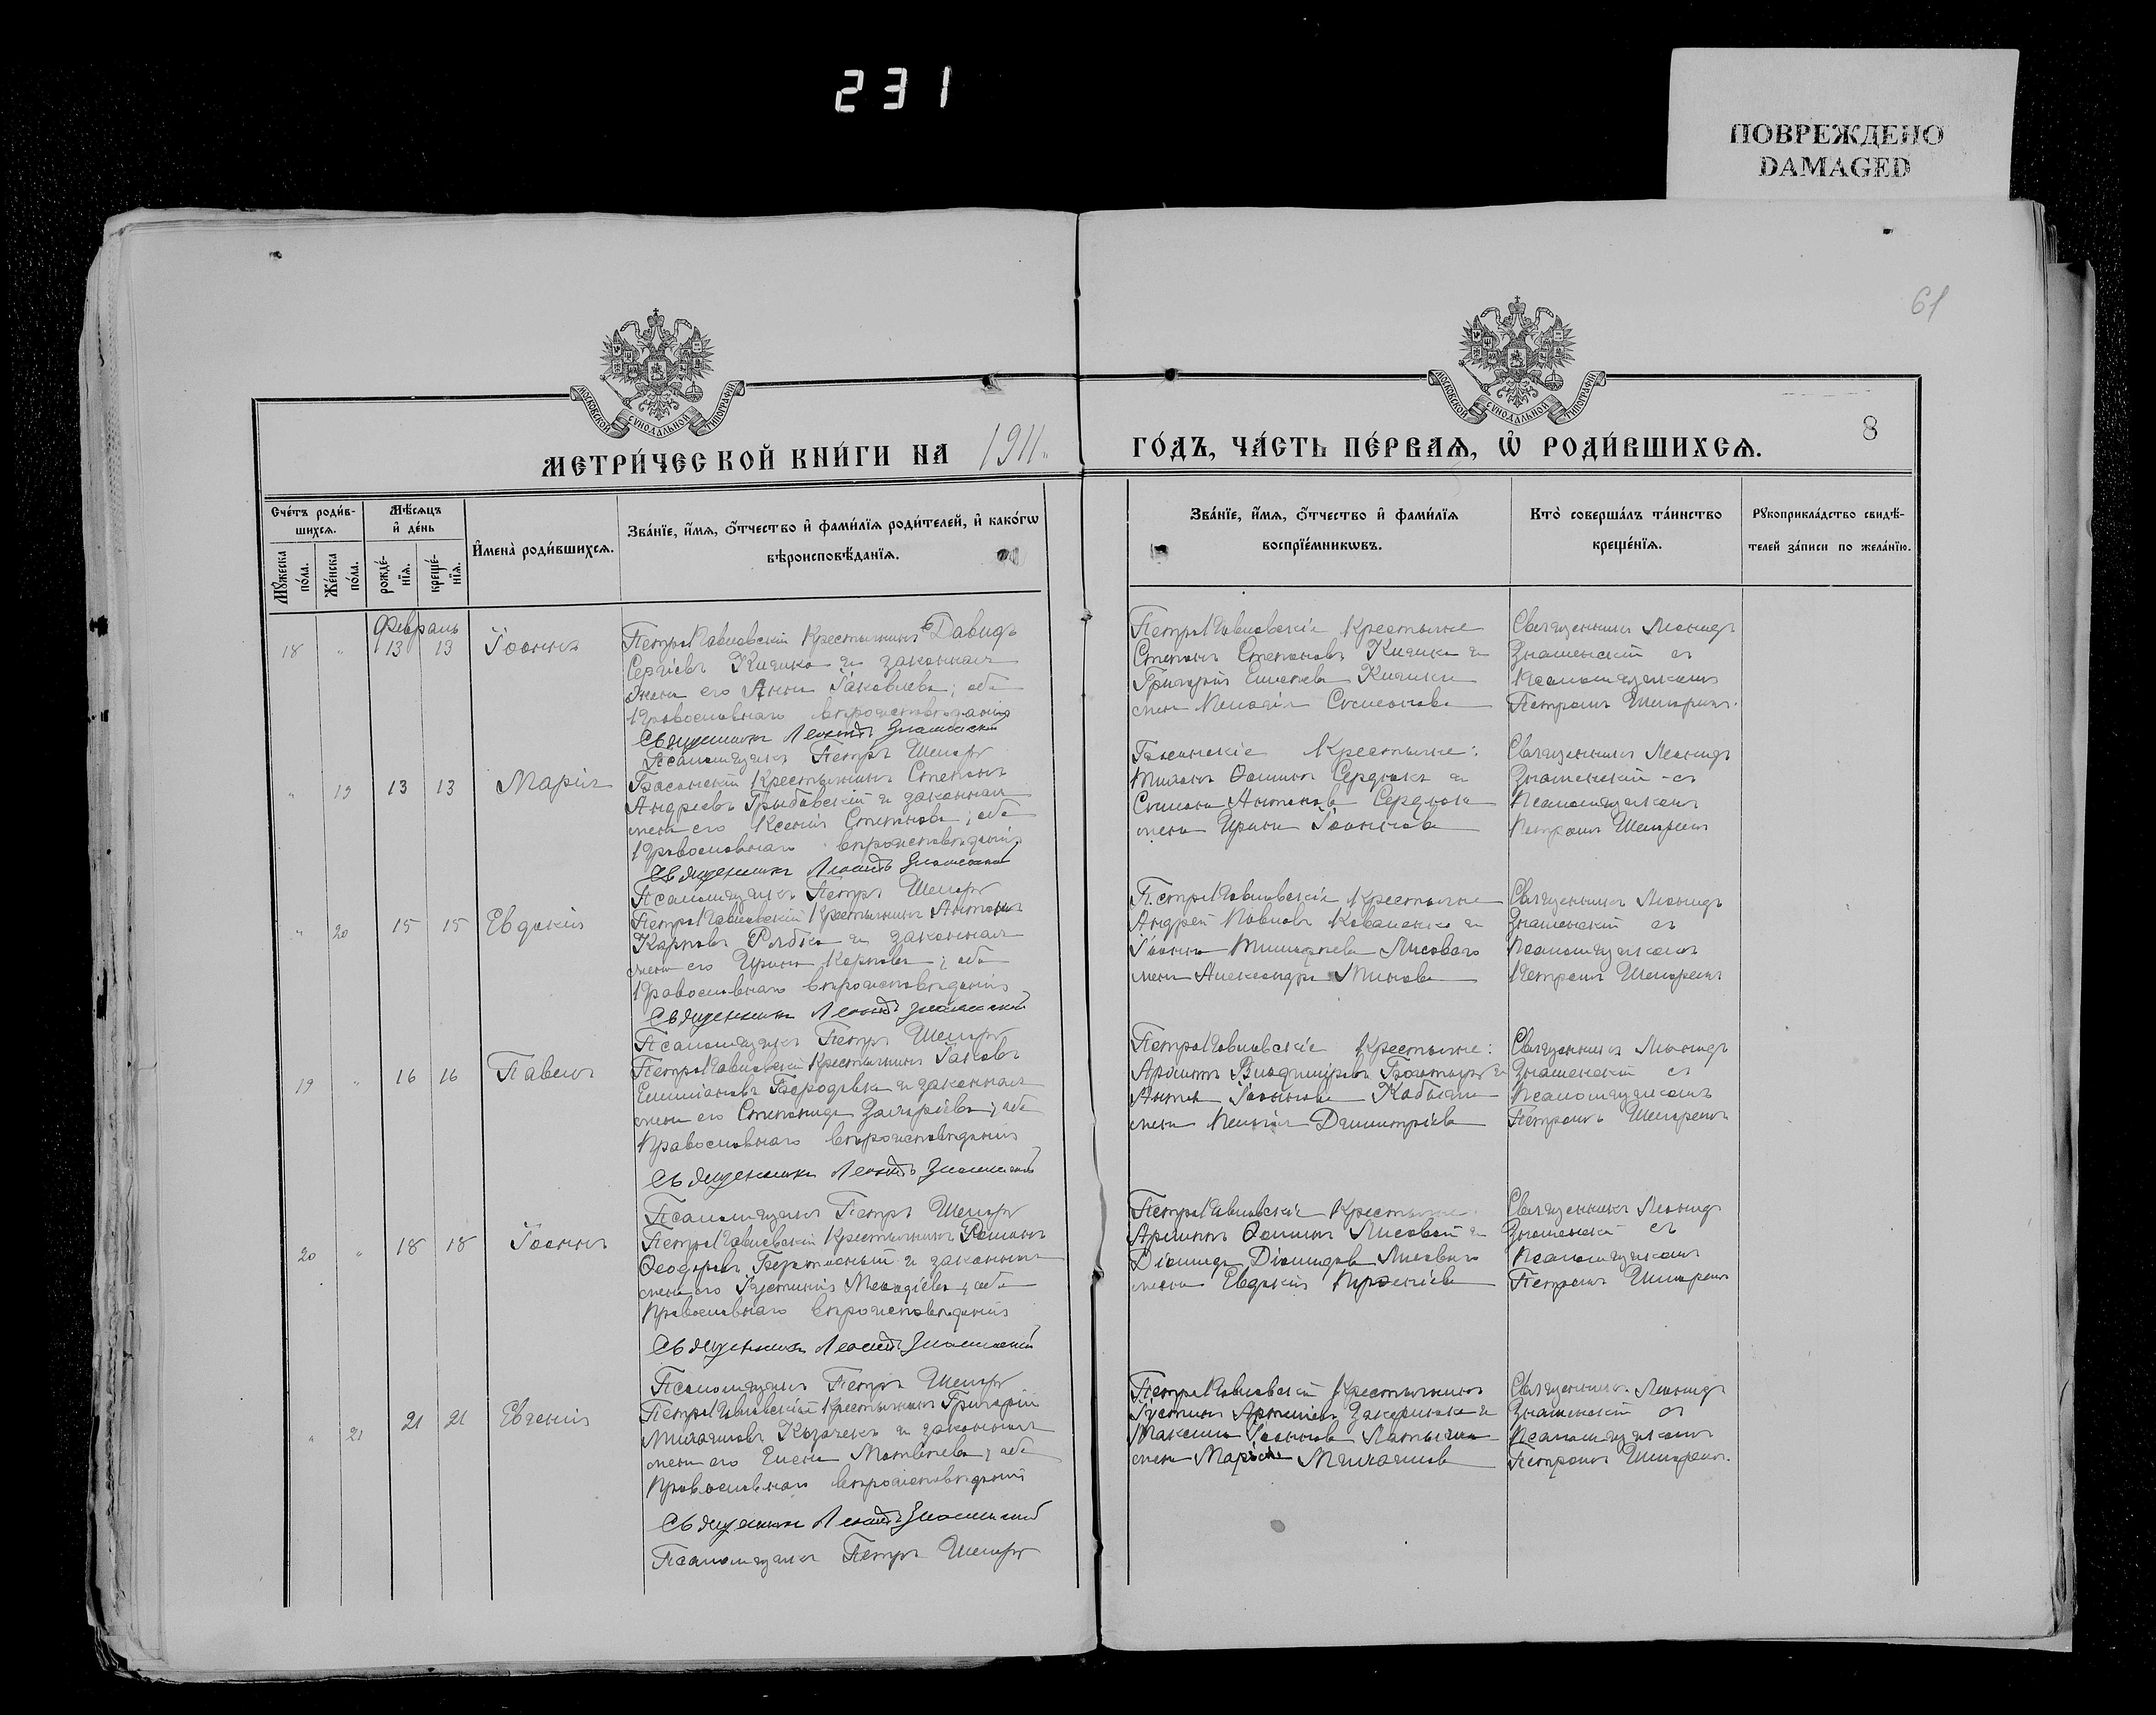 231
ПОВРЕЖДЕНО
DAMAGED
61
МОСКОВСКОЙ СѴНОДАЛЬНОЙ ТИПОГРАФІИ
МОСКОВСКОЙ СѴНОДАЛЬНОЙ ТИПОГРАФІИ
МЕТРИ́ЧЕСКОЙ КНИ́ГИ НА 1911
ГО́ДЪ, ЧА́СТЬ ПЕ́РВАѦ, Ѽ РОДИ́ВШИХСѦ.
8
Сче́тъ роди́в-
шихся.
Мѹ́жеска
по́ла.
Же́нска
по́ла.
Мѣ́сяцъ
и҆ де́нь
рожде́-
нїя.
креще́-
нїя.
И҆мена̀ роди́вшихся.
Зва́нїе, и҆́мя, ѻ҆́тчество и҆ фами́лїя роди́телей, и҆ како́гѡ
вѣроисповѣ́данїя.
Зва́нїе, и҆́мя, ѻ҆́тчество и҆ фами́лїя
воспрїе́мникѡвъ.
Кто̀ соверша́лъ та́инство
креще́нїя.
Рѹкоприкла́дство свидѣ́-
телей за́писи по жела́нїю.
Февраль
18 " 13 13 Іоаннъ
ПетроПавловскій Крестьянинъ Давидъ
Сергіевъ Кичико и законная
жена его Анна Іаковлева; оба
Православнаго вѣроисповѣданія
Священникъ Леонидъ Знаменскій
Псаломщикъ Петръ
ПетроПавловскіе Крестьяне
Степанъ Степановъ Кичико и
Григорія Кичики
жена Пелагія
Священникъ Леонидъ
Знаменскій съ
Псаломщикомъ
Петромъ
" 19 13 13 Марія
Басанскій Крестьянинъ Степанъ
Андреевъ Грыбовскій и законная
жена его Ксенія Степанова; оба
Православнаго вѣроисповѣданія
Священникъ Леонидъ Знаменскій
Псаломщикъ Петръ
Басанскіе Крестьяне:
Ѳоминъ Сердюкъ и
Антонова Сердюка
жена Ирина Іоаннова
Священникъ Леонидъ
Знаменскій съ
Псаломщикомъ
Петромъ
" 20 15 15 Евдокія
ПетроПавловскій Крестьянинъ Антонъ
Карповъ Рябко и законная
жена его Ирина Карпова; оба
Православнаго вѣроисповѣданія
Священникъ Леонидъ Знаменскій
Псаломщикъ Петръ
ПетроПавловскіе Крестьяне
Андрей Павловъ Коваленко и
Іоанна Лисоваго
жена Александра Минова
Священникъ Леонидъ
Знаменскій съ
Псаломщикомъ
Петромъ
19 " 16 16 Павелъ
ПетроПавловскій Крестьянинъ Іаковъ
Бородавка и законная
жена его Степанида Захаріева; оба
Православнаго вѣроисповѣданія
Священникъ Леонидъ Знаменскій
Псаломщикъ Петръ
ПетроПавловскіе Крестьяне:
Владиміровъ и
Антона Іоаннова
жена Пелагія Димитріева
Священникъ Леонидъ
Знаменскій съ
Псаломщикомъ
Петромъ
20 " 18 18 Іоаннъ
ПетроПавловскій Крестьянинъ
Ѳеодоровъ и законная
жена его Іустинія Меѳодіева; оба
Православнаго вѣроисповѣданія
Священникъ Леонидъ Знаменскій
Псаломщикъ Петръ
ПетроПавловскіе Крестьяне
Ѳоминъ Лисовой и
Діомида Діомидова Лисоваго
жена Евдокія
Священникъ Леонидъ
Знаменскій съ
Псаломщикомъ
Петромъ
" 21 21 21 Евгенія
ПетроПавловскій Крестьянинъ Григорій
Михаиловъ Козачекъ и законная
жена его Елена Матвѣева; оба
Православнаго вѣроисповѣданія
Священникъ Леонидъ Знаменскій
Псаломщикъ Петръ
ПетроПавловскій Крестьянинъ
Іустинъ и
Максима Іоаннова
жена Марія Михаилова
Священникъ Леонидъ
Знаменскій съ
Псаломщикомъ
Петромъ